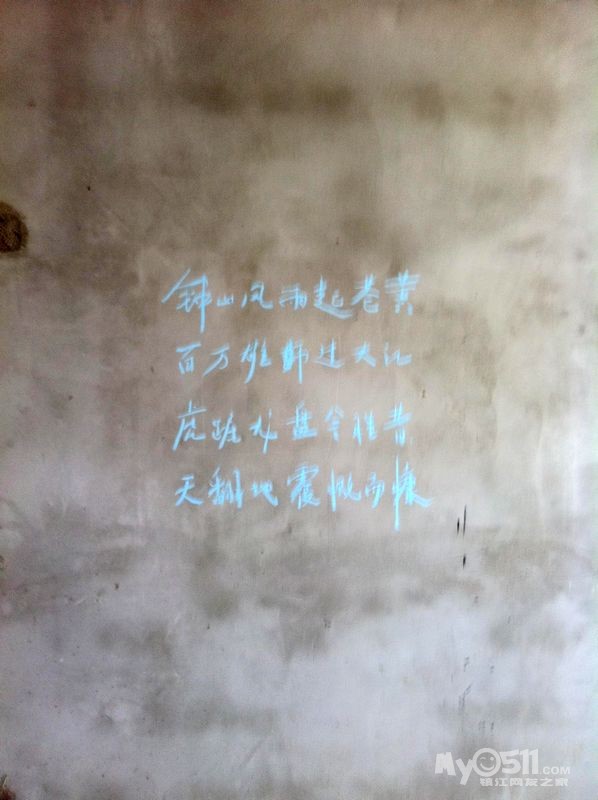 钟山风雨起苍黄
百万雄师过大江
虎踞龙盘今胜昔
天翻地震慨而慷
My0511.COM
镇江网友之家